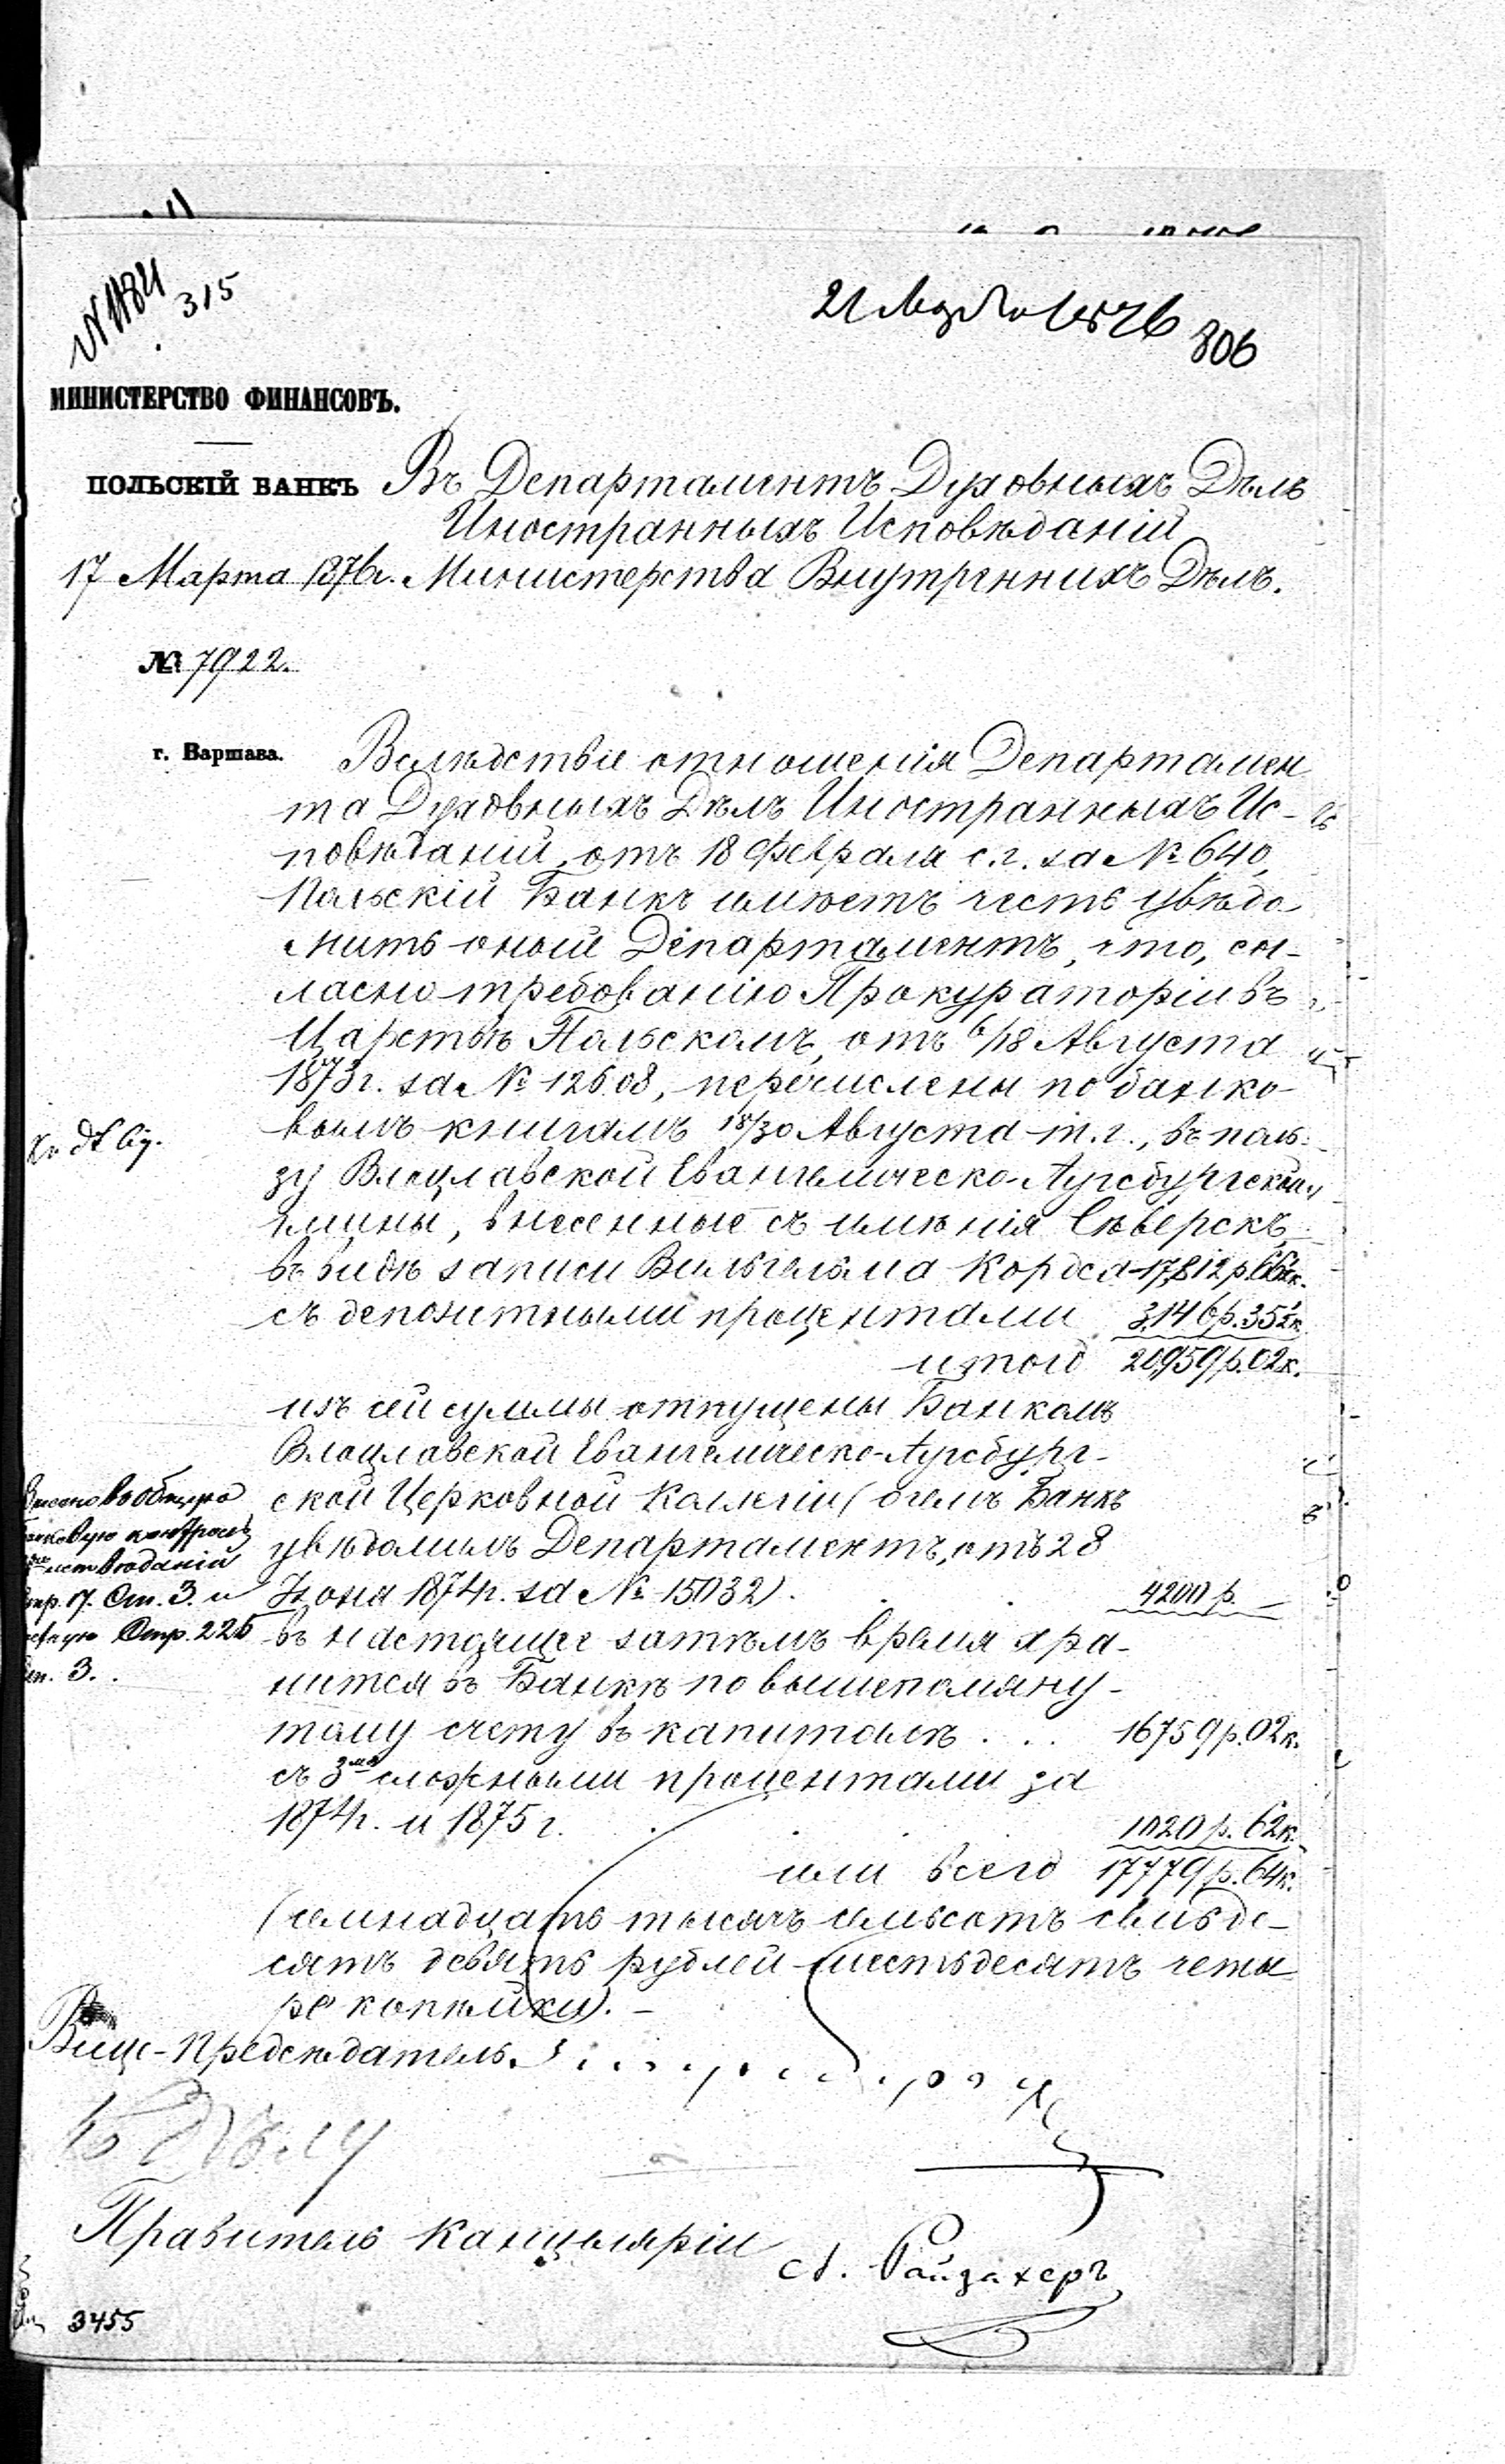 № 1184
315
21 Марта 1876
306
МИНИСТЕРСТВО ФИНАНСОВЪ.
ПОЛЬСКІЙ БАНКЪ
Въ Департаментъ Духовныхъ Дѣлъ
Иностранныхъ Исповѣданій
17 Марта 1876г. Министерства Внутреннихъ Дѣлъ.
№ 7922.
г. Варшава.
Вслѣдствіе отношенія Департамен
та Духовныхъ Дѣлъ Иностранныхъ Ис-
повѣданій, отъ 18 Февраля с.г. за № 640,
Польскій Банкъ имѣетъ честь увѣдо
мить оный Департаментъ, что, со-
гласно требованію Прокураторіи въ
Царствѣ Польскомъ, отъ 6/18 Августа
1873г. за № 12608, перечислены по банко-
вымъ книгамъ 18/30 Августа т.г., въ поль-
зу Влоцлавской Евангелическо-Аугсбургской
гмины, внесенные съ имѣнія Сѣверскъ
въ видѣ записи Вильгельма Кордса 17,812 р. 66½к.
съ депозитными процентами 3,146 р. 35½к.
итого 20,959 р. 02 к.
изъ сей суммы отпущены Банкомъ
Влоцлавской Евангелическо-Аугсбург-
ской Церковной Коллегіи (о чемъ Банкъ
увѣдомилъ Департаментъ, отъ 28
Іюня 1874г. за № 15032). 4200 р. —
въ настоящее затѣмъ время хра-
нится въ Банкѣ по вышепомяну-
тому счету въ капиталѣ . . . 16759 р. 02 к.
съ 3мя сложными процентами за
1874г. и 1875г. 1020 р. 62 к.
или всего 17779 р. 64 к.
(семнадцать тысячъ семьсотъ семьде-
сятъ девять рублей шестьдесятъ четы
ре копѣйки). —
стр. 17. Ст. 3. и
Стр. 225
ст. 3.
Вице-Предсѣдатель
Къ дѣлу
Правитель Канцеляріи
А. Райзахеръ
3455